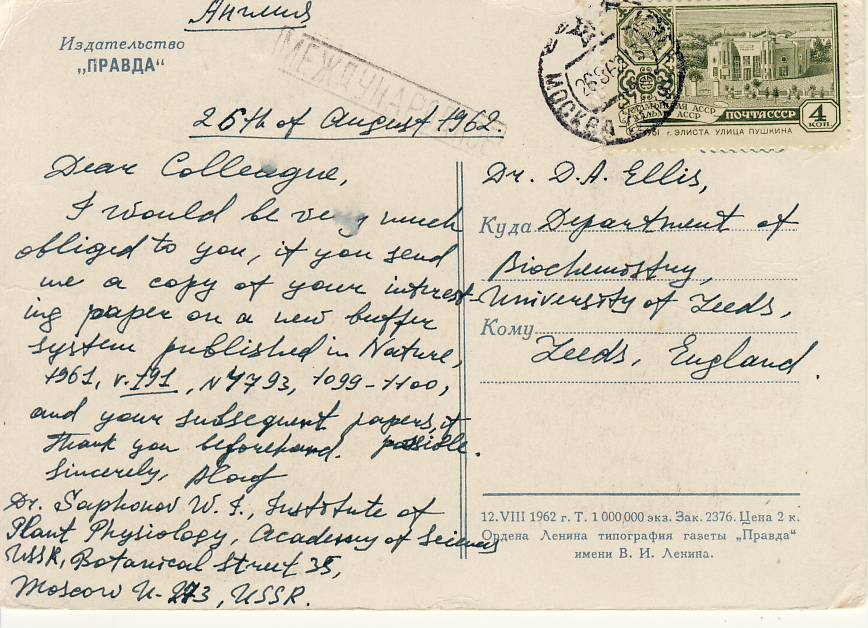 Англия
Издательство
„ПРАВДА“
МЕЖДУНАРОДНОЕ
МОСКВА
ПОЧТА СССР
4
КОП.
г. ЭЛИСТА УЛИЦА ПУШКИНА
26th of August 1962.
Dear Colleague,
I would be very much
obliged to you, if you send
me a copy of your interest-
ing paper on a new buffer
system published in Nature,
1961, v. 191, N 4793, 1099-1100,
and your subsequent papers, if
possible.
Thank you beforehand.
Sincerely,
Dr. Saphonov W. I., Institute of
Plant Physiology, Academy of Sciences
USSR, Botanical Street 35,
Moscow U-273, USSR.
Dr. D.A. Ellis,
Куда Department of
Biochemistry,
University of Leeds,
Кому
Leeds, England.
12.VIII 1962 г. Т. 1 000 000 экз. Зак. 2376. Цена 2 к.
Ордена Ленина типография газеты „Правда“
имени В. И. Ленина.